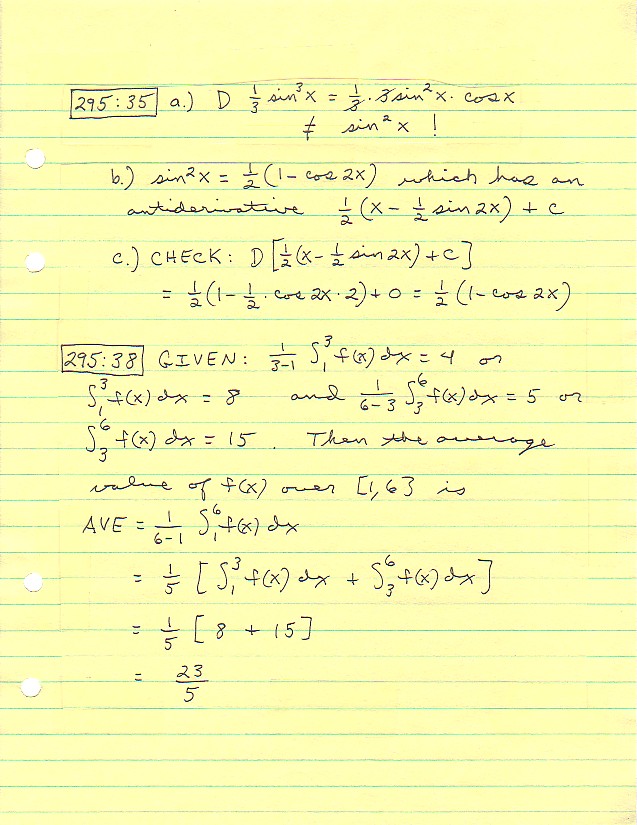 295:35 a.) D 1/3 sin³x = 1/3 · 3 sin²x · cosx
≠ sin²x !
b.) sin²x = 1/2 (1 - cos 2x) which has an
antiderivative 1/2 (x - 1/2 sin 2x) + C
c.) CHECK: D [1/2 (x - 1/2 sin 2x) + C]
= 1/2 (1 - 1/2 · cos 2x · 2) + 0 = 1/2 (1 - cos 2x)
295:38 GIVEN: 1/(3-1) ∫₁³ f(x) dx = 4 or
∫₁³ f(x) dx = 8 and 1/(6-3) ∫₃⁶ f(x) dx = 5 or
∫₃⁶ f(x) dx = 15 . Then the average
value of f(x) over [1,6] is
AVE = 1/(6-1) ∫₁⁶ f(x) dx
= 1/5 [ ∫₁³ f(x) dx + ∫₃⁶ f(x) dx ]
= 1/5 [ 8 + 15 ]
= 23/5